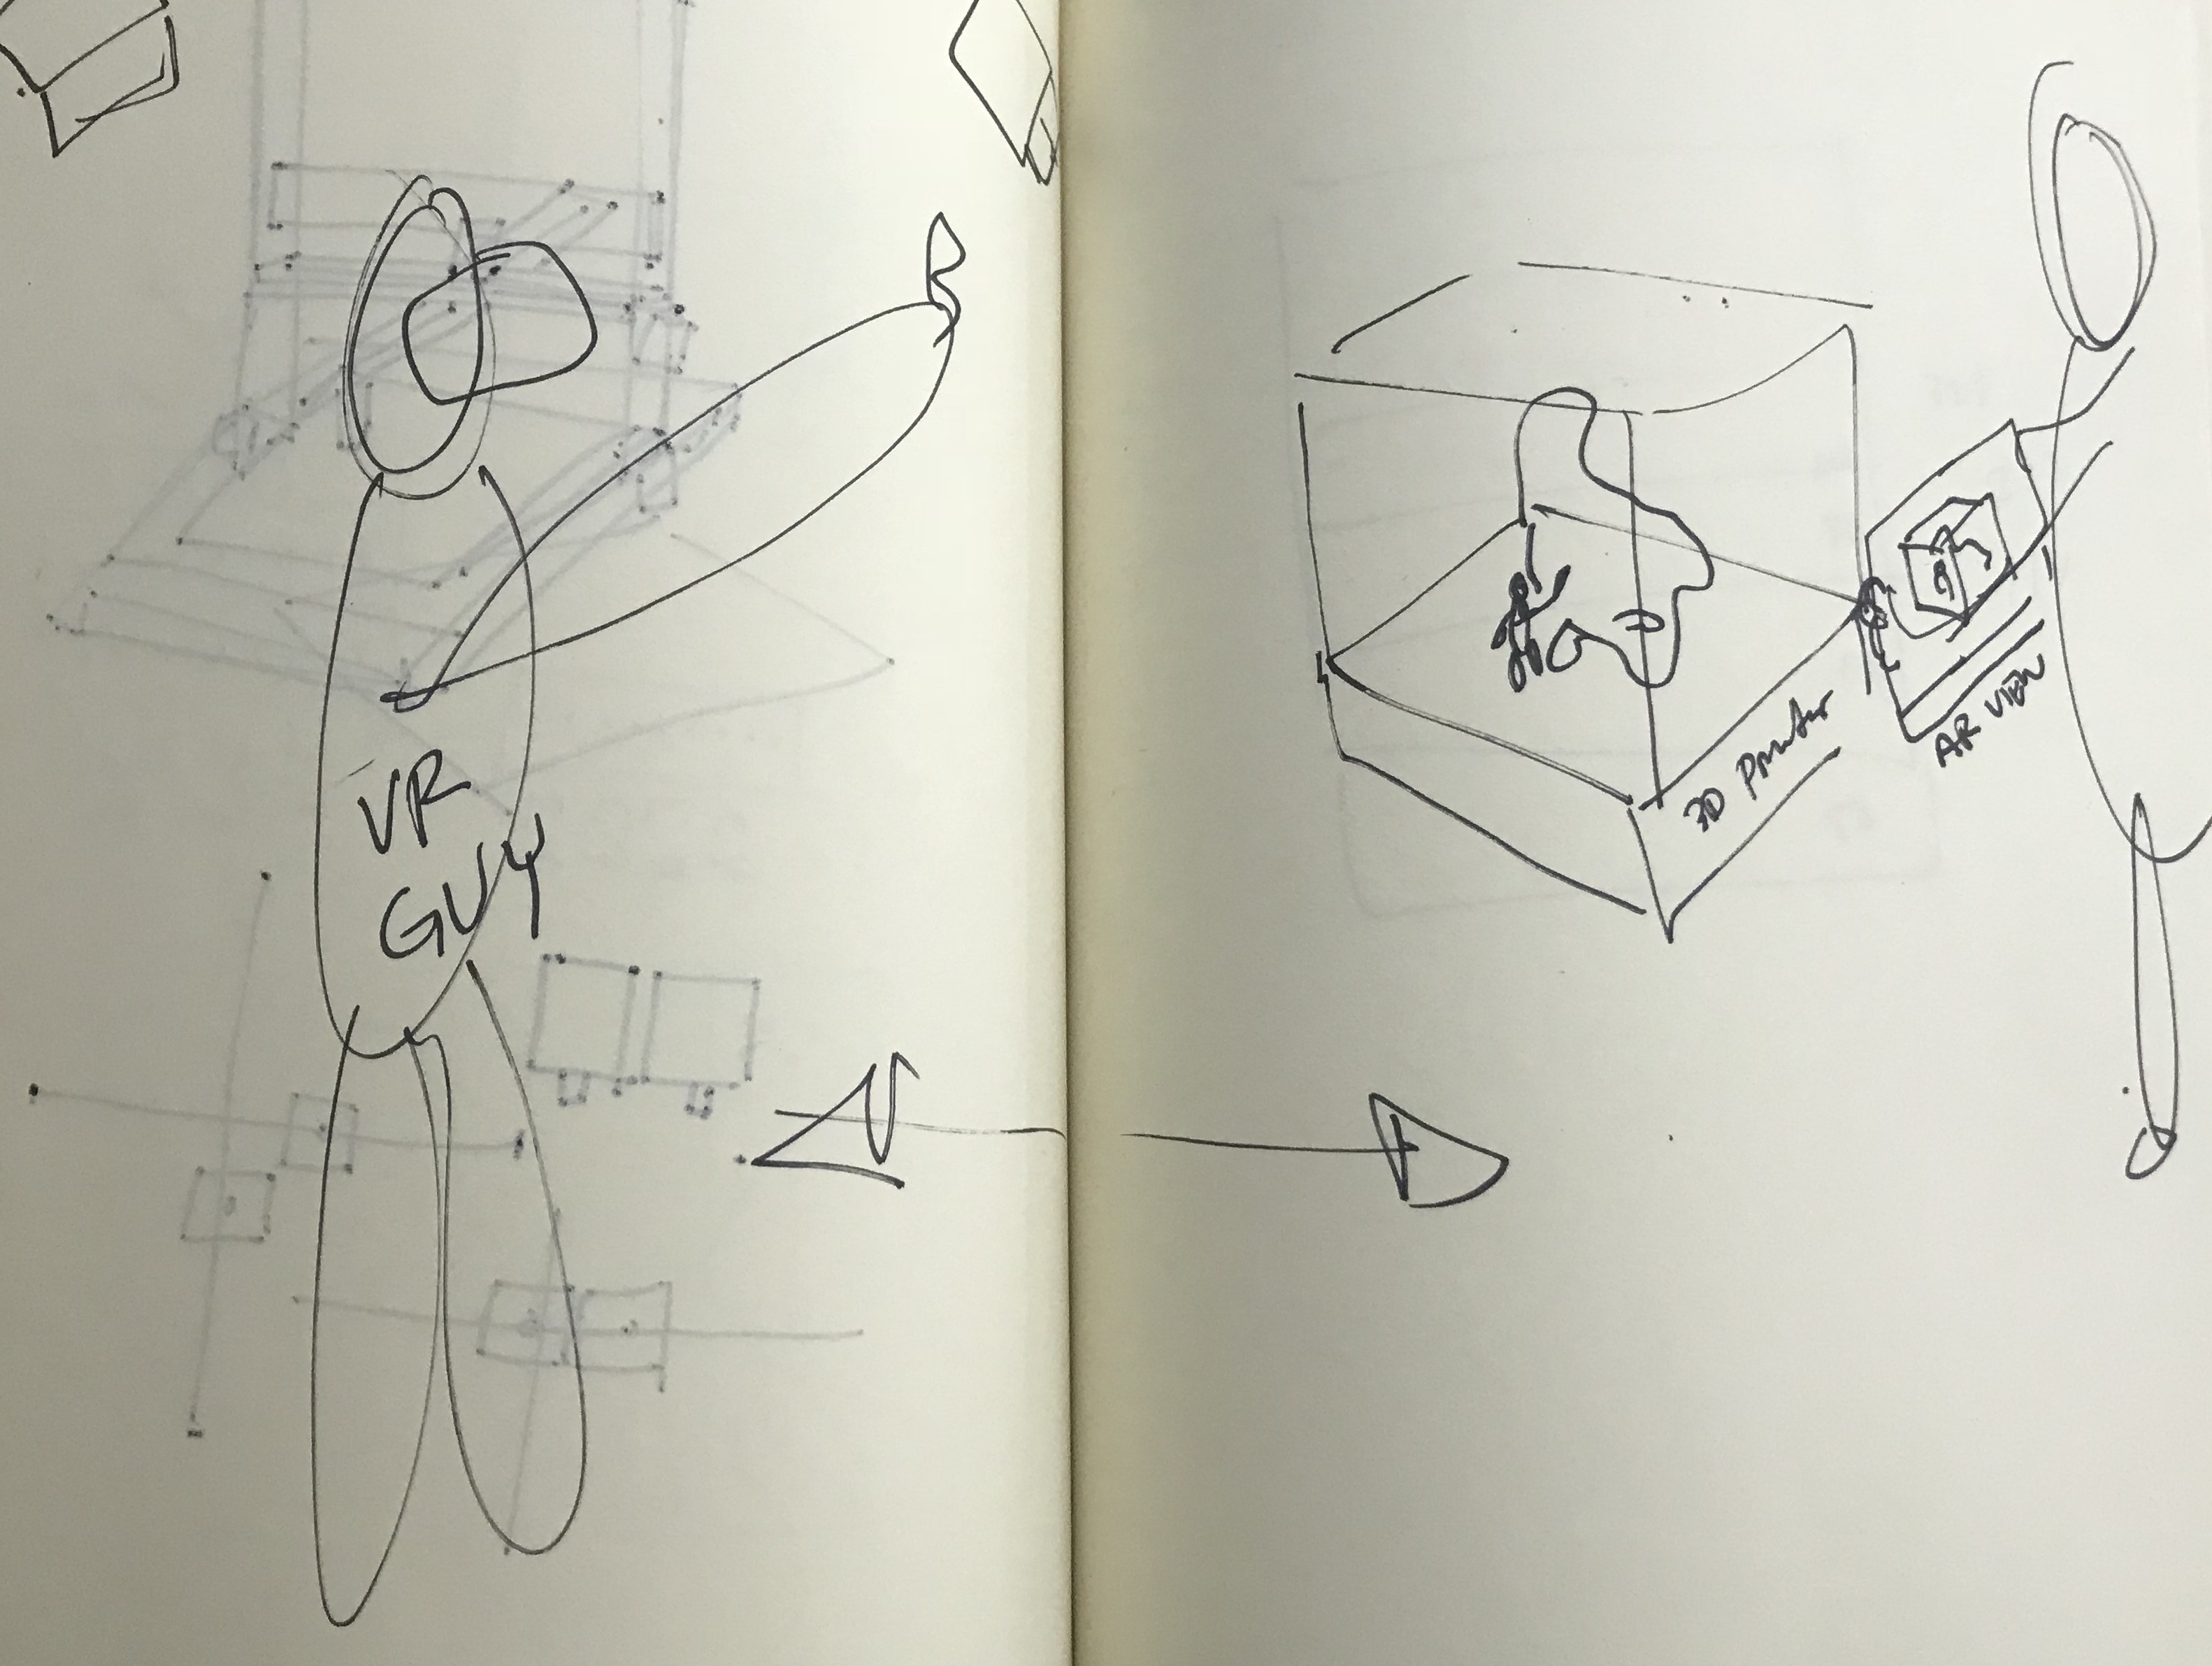 VR
GUY
3D Printer
AR VIEW